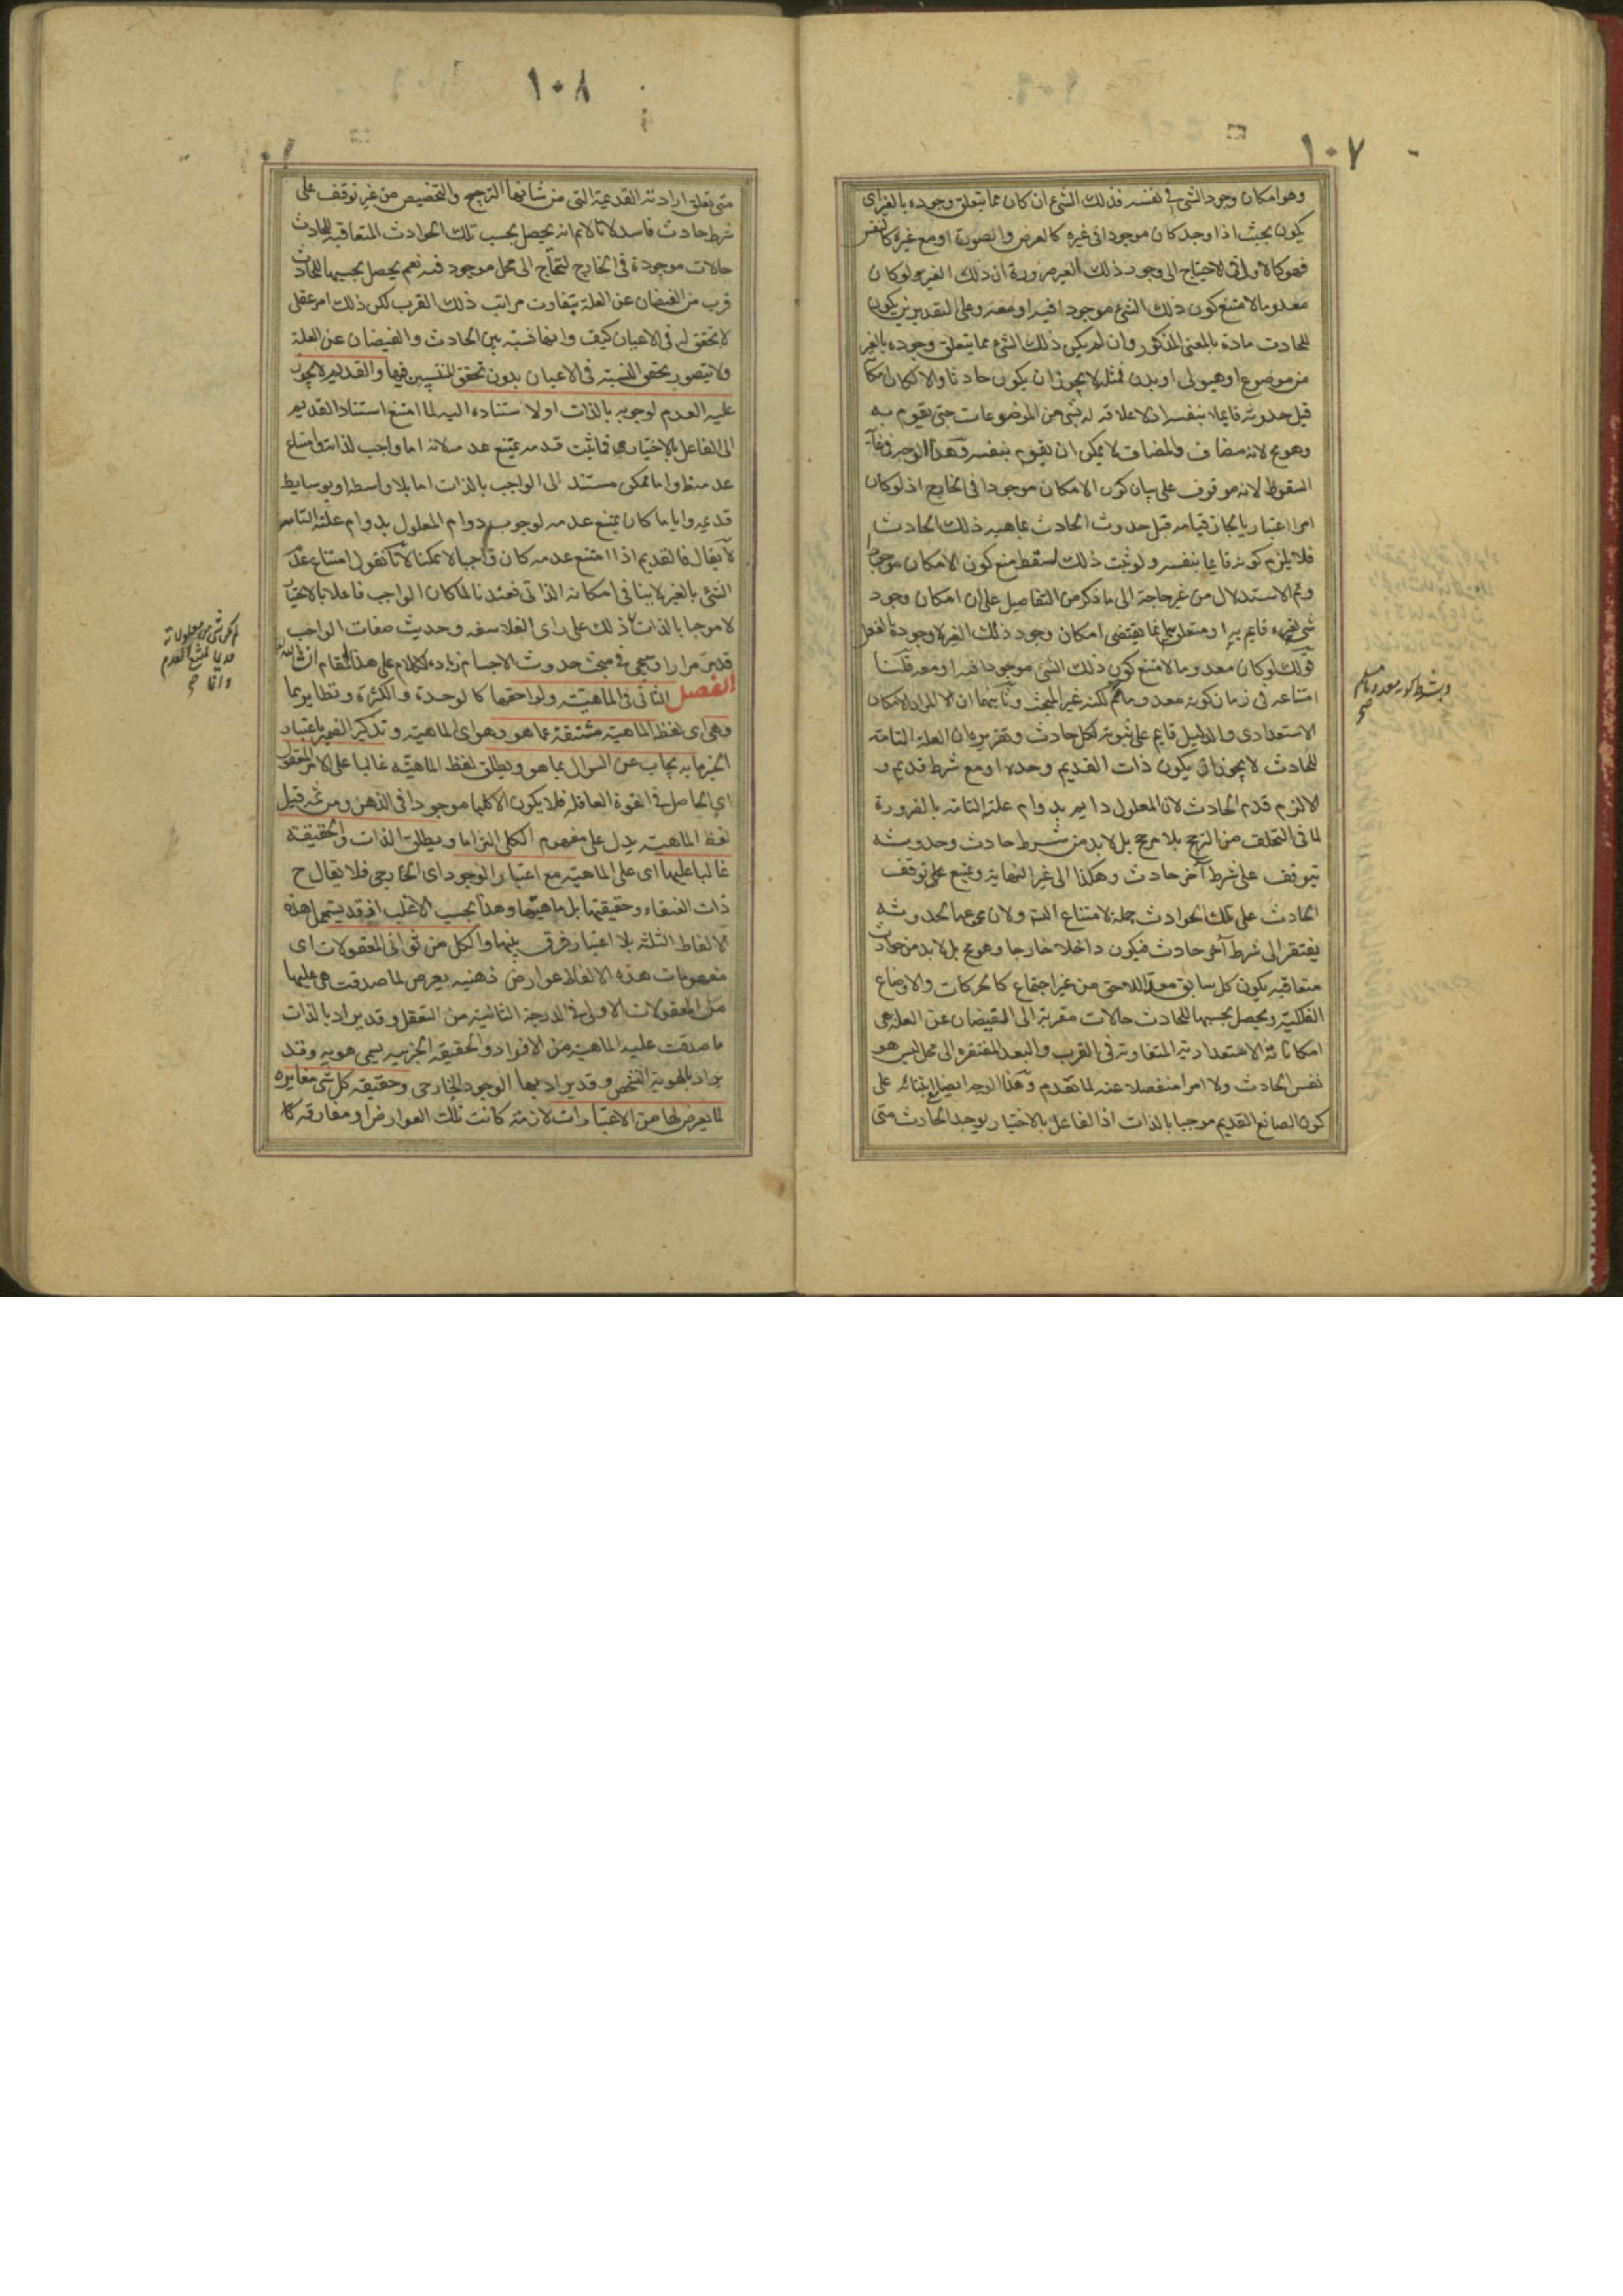 ١٠٧
وهو امكان وجود الشئ في نفسه فذلك الشئ ان كان مما يتعلق وجوده بالغير اى
يكون بحيث اذا وجد كان موجودا فى غيره كالعرض والصورة او مع غيره كالنفس
فهو كالاول فى الاحتياج الى وجود ذلك الغير ضرورة ان ذلك الغير لو كان
معدوما لامتنع كون ذلك الشئ موجودا فيه او معه وعلى التقديرين يكون
للحادث مادة بالمعنى المذكور وان لم يكن ذلك الشئ مما يتعلق وجوده بالغير
من موضوع او هيولى او بدن فمثله لا يجوز ان يكون حادثا والا لكان امكا
قبل حدوثه قايما بنفسه اذ لا علاقه له بشى من الموضوعات حتى يقوم به
وهو مح لانه مضاف والمضاف لا يمكن ان يقوم بنفسه وهذا الوجه فى غاية
السقوط لانه موقوف على بيان كون الامكان موجودا فى الخارج اذ لو كان
امرا اعتباريا لجاز قيامه قبل حدوث الحادث بماهيه ذلك الحادث
فلا يلزم كونه قايما بنفسه ولو ثبت ذلك لسقط منع كون الامكان موجودا
وتم الاستدلال من غير حاجة الى ما ذكر من التفاصيل على ان امكان وجود
شئ لغيره قايم به او متعلق انما يقتضى امكان وجود ذلك الغير لا وجوده بالفعل
قولك لو كان معدوما لامتنع كون ذلك الشى موجودا فيه او معه قلنا
امتناعه فى زمان كونه معدوما مم لكنه غير المبحث وثانيهما ان المراد الامكان
الاستعدادى والدليل قايم على ثبوته لكل حادث وتقريره ان العلة التامة
للحادث لا يجوز ان يكون ذات القديم وحده او مع شرط قديم و
الا لزم قدم الحادث لان المعلول دايم بدوام علته التامه بالضرورة
لما فى التخلف من الترجح بلا مرجح بل لابد من شرط حادث وحدوثه
يتوقف على شرط آخر حادث وهكذا الى غير النهاية ويمتنع على توقف
الحادث على تلك الحوادث جملة لامتناع التسم ولان مجموعها لحدوثه
يفتقر الى شرط آخر حادث فيكون داخلا خارجا وهو مح بل لابد من حوادث
متعاقبه يكون كل سابق معدا للاحق من غير اجتماع كالحركات والاوضاع
الفلكية ويحصل بحسبها للحادث حالات مقربة الى الفيضان عن العلة هى
امكاناته الاستعدادية المتفاوتة فى القرب والبعد المفتقره الى محل ليس هو
نفس الحادث ولا امرا منفصلا عنه لما تقدم وهذا الوجه ايضا لابتنائه على
كون الصانع القديم موجبا بالذات اذ الفاعل بالاختيار يوجد الحادث متى
وبشرط كونه معدوما مسلم
صح
١٠٨
متى تعلق ارادته القديمة التى من شانها الترجيح والتخصيص من غير توقف على
شرط حادث فاسد لانا لانم انه يحصل بحسب تلك الحوادث المتعاقبه للحادث
حالات موجودة فى الخارج لتحتاج الى محل موجود فيه نعم يحصل بحسبها للحادث
قرب من الفيضان عن العلة يتفاوت مراتب ذلك القرب لكن ذلك امر عقلى
لا تحقق له فى الاعيان كيف وانها نسبة بين الحادث والفيضان عن العلة
ولا يتصور تحقق النسبة فى الاعيان بدون تحقق المنتسبين فيها والقديم لا يجوز
عليه العدم لوجوبه بالذات او لاستناده اليه لما امتنع استناد القديم
الى الفاعل بالاختيار فما ثبت قدمه يمتنع عدمه لانه اما واجب لذاته وامتناع
عدمه ظ واما ممكن مستند الى الواجب بالذات اما بلا واسطه او بوسايط
قديمه وايا ما كان يمتنع عدمه لوجوب دوام المعلول بدوام علته التامه
لا يقال فالقديم اذا امتنع عدمه كان واجبا لا ممكنا لانا نقول امتناع عدم
الشئ بالغير لا ينافى امكانه الذاتى فعندنا لما كان الواجب فاعلا بالاختيار
لا موجبا بالذات ذلك على راى الفلاسفه وحديث صفات الواجب
قد مر مرارا وسيجى فى مبحث حدوث الاجسام زيادة الكلام على هذا المقام ان شا الله تعالى
الفصل الثانى فى الماهية ولواحقها كالوحدة والكثرة ونظايرهما
وهى اى لفظ الماهية مشتقة عما هو وهو اى الماهية وتذكير الضمير باعتبار
الخبر ما به يجاب عن السوال بما هو ويطلق لفظ الماهية غالبا على الامر المتعقل
اى الحاصل فى القوة العاقلة فلا يكون الا كليا موجودا فى الذهن ومن ثمه قيل
لفظ الماهية يدل على مفهوم الكلى التزاما ويطلق الذات والحقيقه
غالبا عليها اى على الماهية مع اعتبار الوجود اى الخارجى فلا يقال ح
ذات العنقاء وحقيقتها بل ماهيتها وهذا بحسب الاغلب اذ قد يستعمل هذه
الالفاظ الثلثه بلا اعتبار فرق بينها والكل من ثوانى المعقولات اى
مفهومات هذه الالفاظ عوارض ذهنيه يعرض لما صدقت هى عليها
من المعقولات الاولى فى الدرجة الثانية من التعقل وقد يراد بالذات
ما صدقت عليه الماهية من الافراد والحقيقه الجزييه يسمى هويه وقد
يراد بالهوية التشخص وقد يراد بها الوجود الخارجى وحقيقه كل شى مغايره
لما يعرض لها من الاعتبارات لازمة كانت تلك العوارض او مفارقه كا